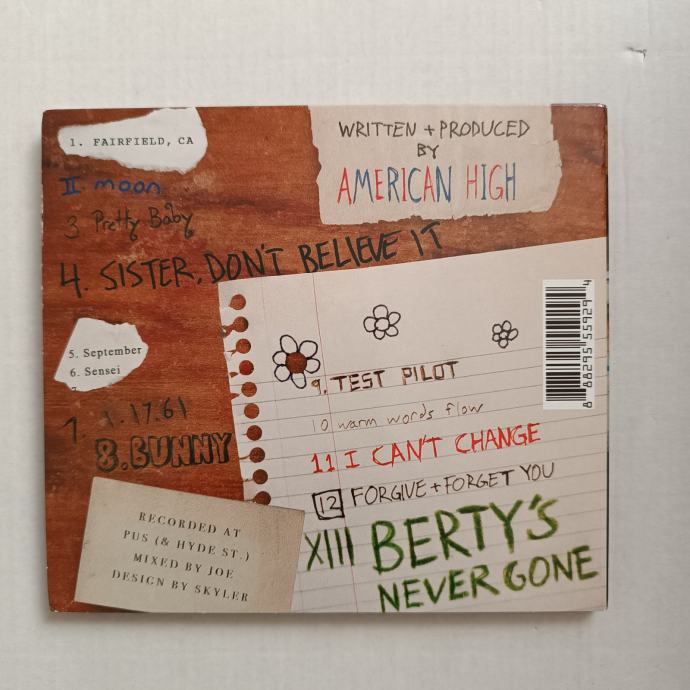 1. FAIRFIELD, CA
II moon
3 Pretty Baby
4. SISTER, DON'T BELIEVE IT
5. September
6. Sensei
7. 1.17.61
8. BUNNY
9. TEST PILOT
10 warm words flow
11 I CAN'T CHANGE
12 FORGIVE + FORGET YOU
XIII BERTY'S
NEVER GONE
WRITTEN + PRODUCED
BY
AMERICAN HIGH
RECORDED AT
PUS (& HYDE ST.)
MIXED BY JOE
DESIGN BY SKYLER
8 88295 55929 4